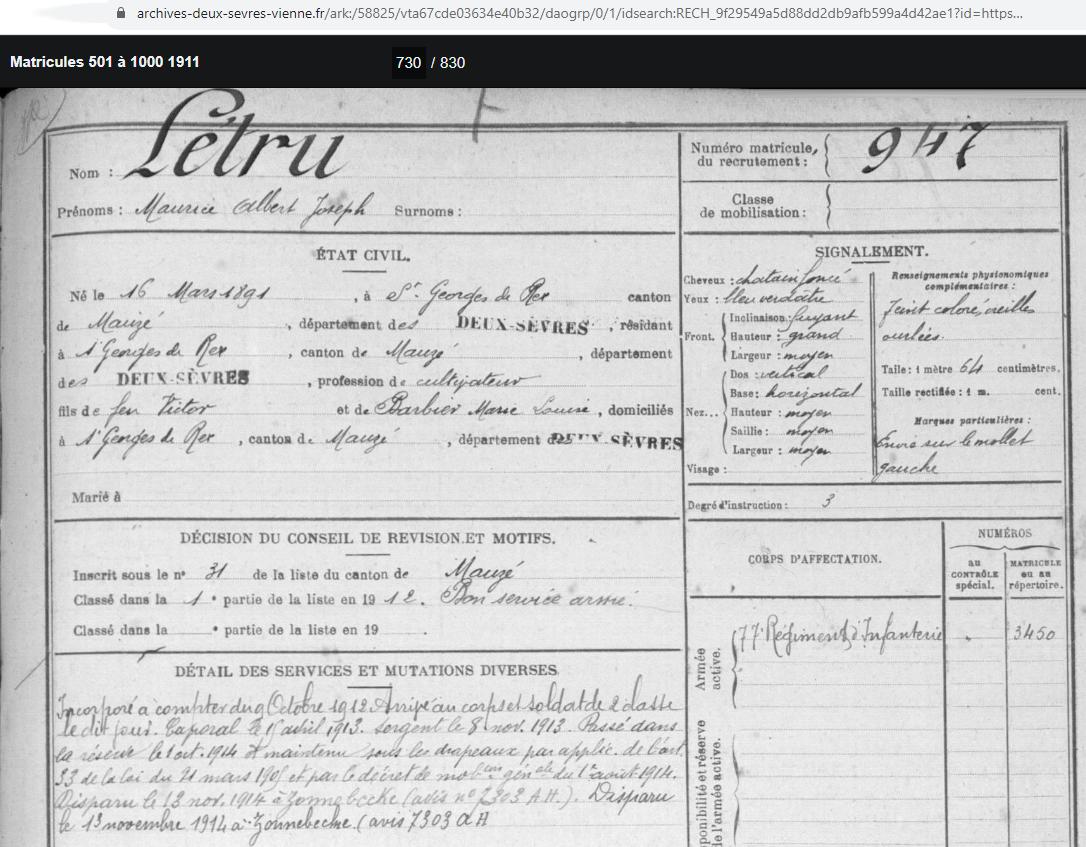 archives-deux-sevres-vienne.fr/ark:/58825/vta67cde03634e40b32/daogrp/0/1/idsearch:RECH_9f29549a5d88dd2db9afb599a4d42ae1?id=https...
Matricules 501 à 1000 1911
730 / 830
Nom : Létru
Prénoms : Maurice Albert Joseph Surnoms :
Numéro matricule du recrutement : 947
Classe de mobilisation :
ÉTAT CIVIL.
Né le 16 Mars 1891, à St Georges de Rex canton
de Mauzé, département des DEUX-SÈVRES, résidant
à St Georges de Rex, canton de Mauzé, département
des DEUX-SÈVRES, profession de cultivateur
fils de feu Victor et de Barbier Marie Louise, domiciliés
à St Georges de Rex, canton de Mauzé, département des DEUX-SÈVRES
Marié à
SIGNALEMENT.
Cheveux : chatain foncé
Yeux : bleu verdâtre
Front. Inclinaison : fuyant
Hauteur : grand
Largeur : moyen
Nez... Dos : vertical
Base : horizontal
Hauteur : moyen
Saillie : moyen
Largeur : moyen
Visage :
Renseignements physionomiques
complémentaires :
Teint coloré, oreilles
ourlées.
Taille : 1 mètre 64 centimètres.
Taille rectifiée : 1 m. cent.
Marques particulières :
Envie sur le mollet
gauche
Degré d'instruction : 3
DÉCISION DU CONSEIL DE REVISION ET MOTIFS.
Inscrit sous le n° 31 de la liste du canton de Mauzé
Classé dans la 1e partie de la liste en 1912. Bon service armé.
Classé dans la e partie de la liste en 19 .
CORPS D'AFFECTATION.
NUMÉROS
au CONTRÔLE spécial.
MATRICULE ou au répertoire.
Armée active.
77e Régiment d'Infanterie " 3450
Disponibilité et réserve de l'armée active.
DÉTAIL DES SERVICES ET MUTATIONS DIVERSES
Incorporé à compter du 9 Octobre 1912. Arrivé au corps et soldat de 2e classe
le dit jour. Caporal le 1er avril 1913. Sergent le 8 nov. 1913. Passé dans
la réserve le 1er oct. 1914 et maintenu sous les drapeaux par applic. de l'art.
33 de la loi du 21 mars 1905 et par le décret de mobon génale du 1er août 1914.
Disparu le 13 nov. 1914 à Zonnebecke (avis n° 7303 A.H.). Disparu
le 13 novembre 1914 à Zonnebecke. (avis 7303 A H